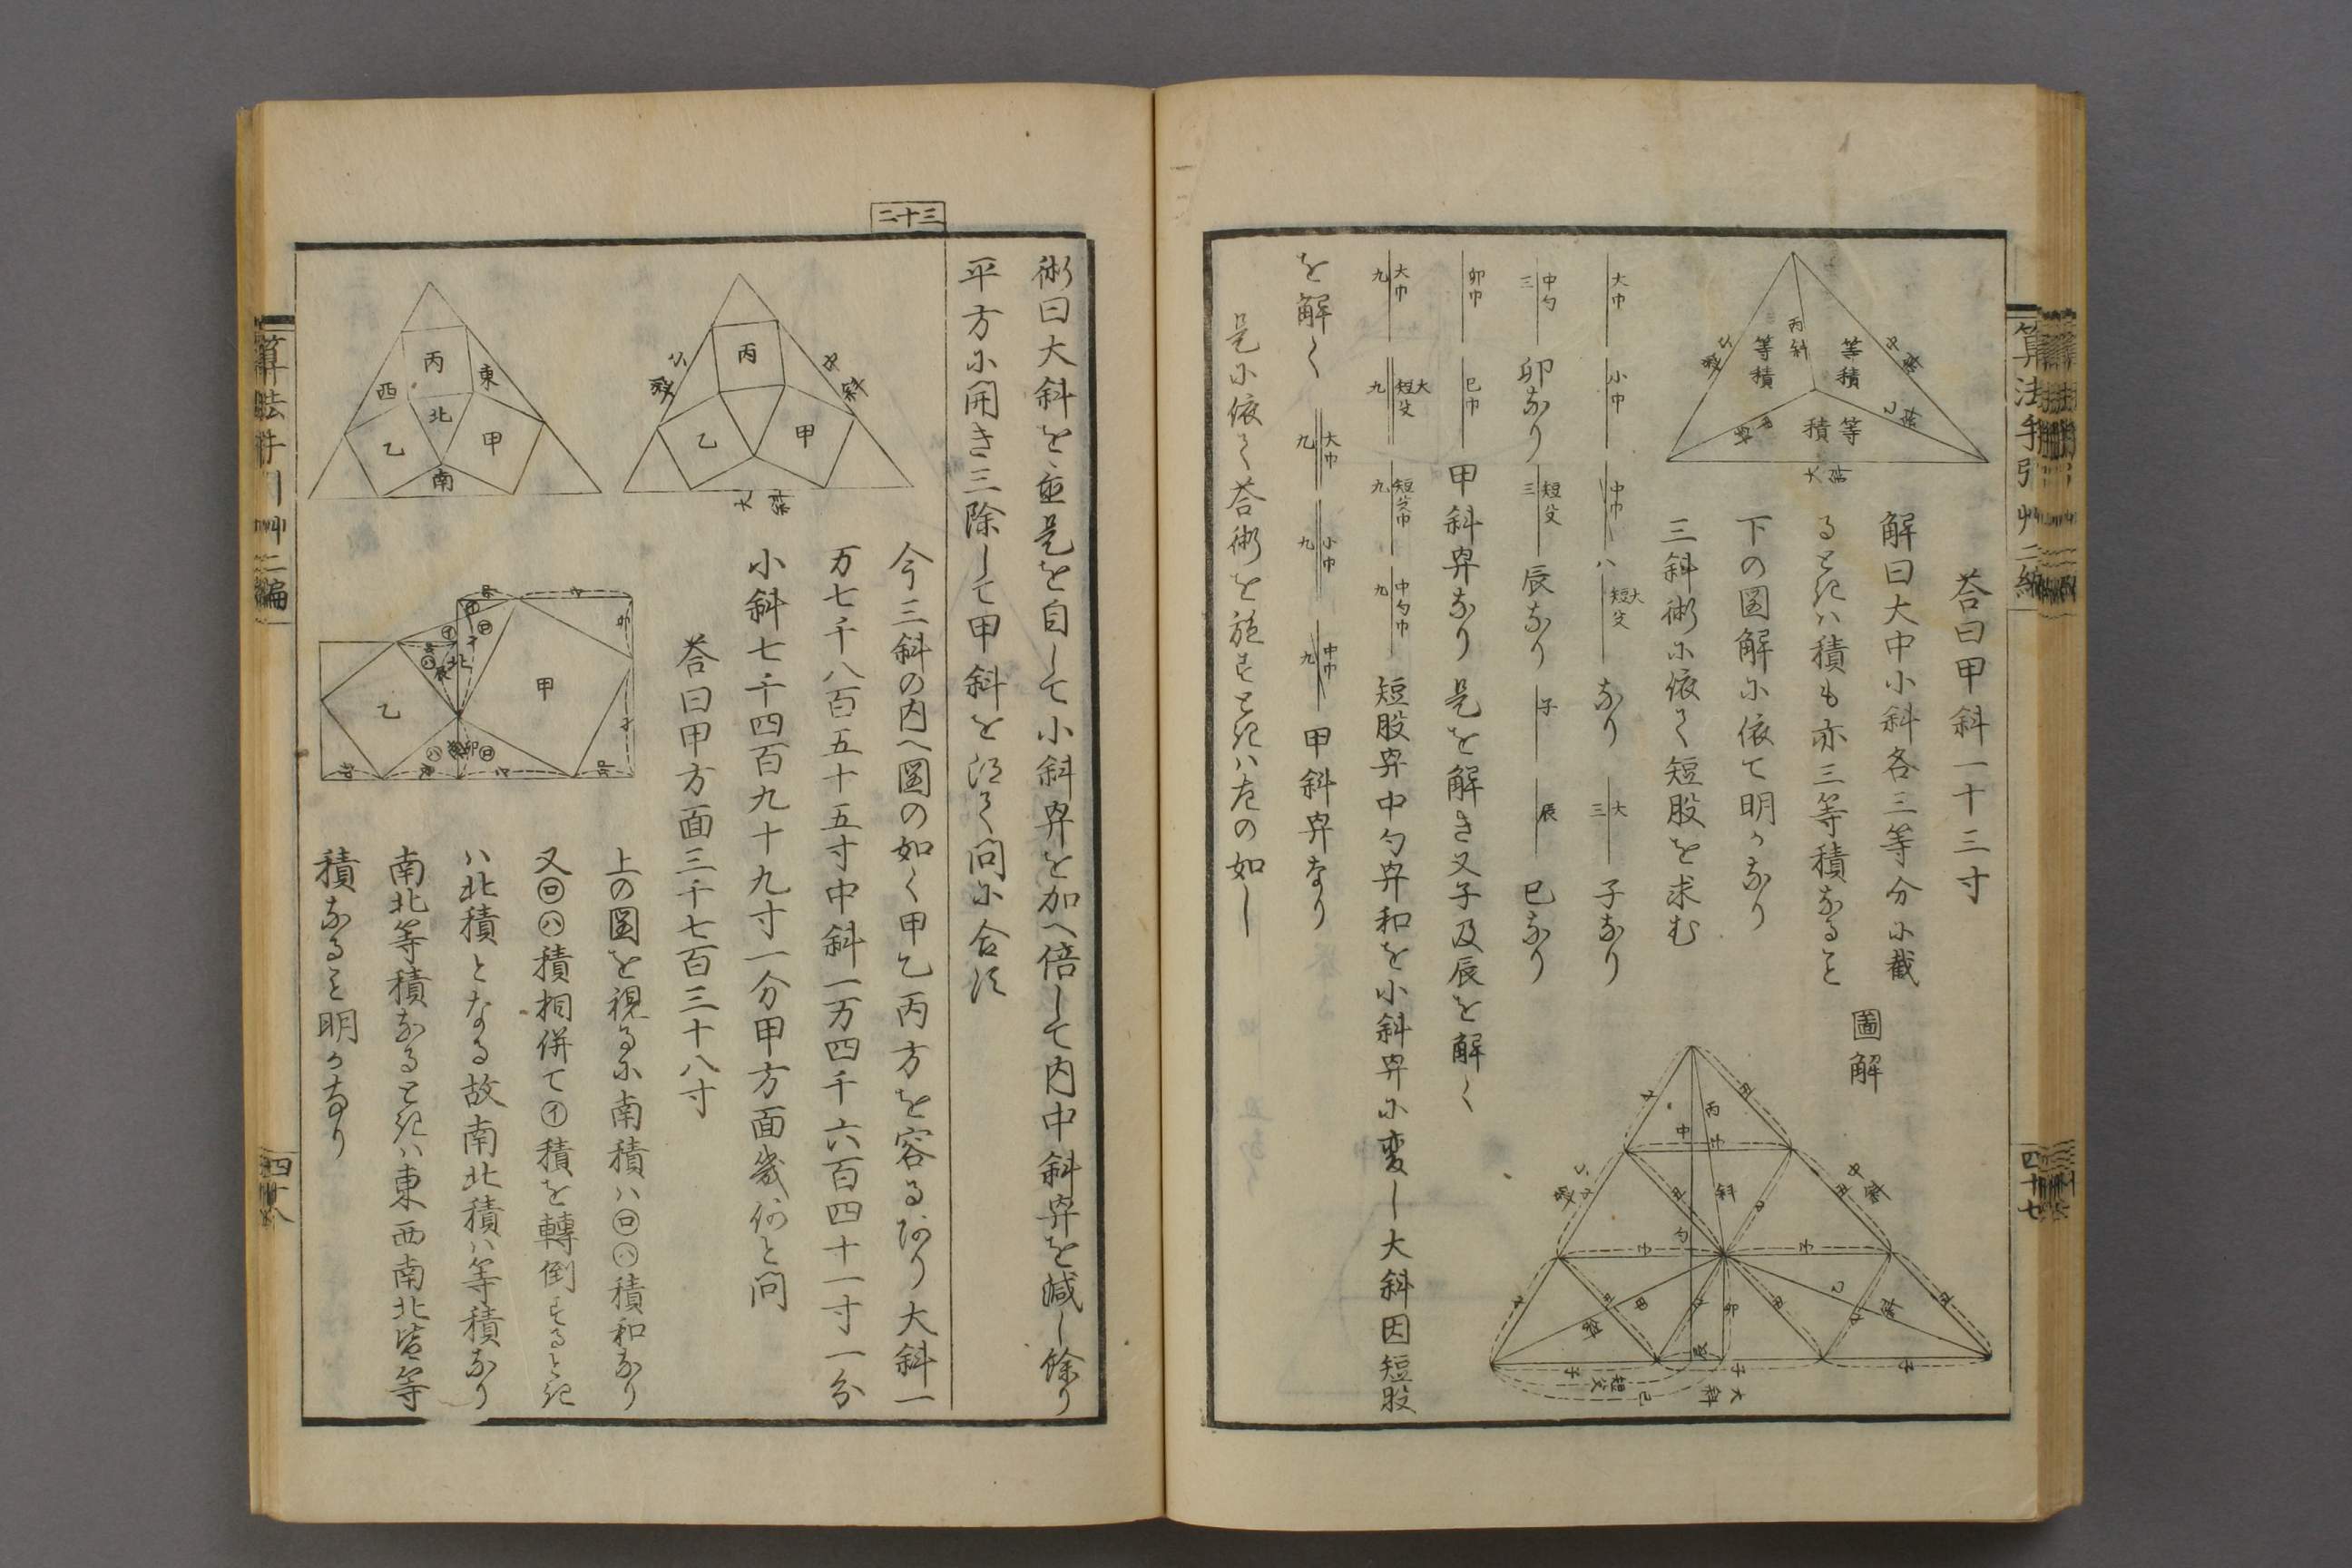 算法手引艸二編
四十七
答曰甲斜一十三寸
解曰大中小斜各三等分小截
るとき(ハ)積も亦三等積なること
下の圖解小依て明かなり
三斜術小依て短股を求む
圖解
等積
等積
等積
丙斜
大巾
小巾
中巾
なり
子なり
中勾
三
卯なり
短股
三
辰なり
子
辰
巳なり
卯巾
巳巾
甲斜巾なり是を解き又子及辰を解く
大巾
九
短股巾
九
中勾巾
九
短股巾中勾巾和を小斜巾小変し大斜因短股
を解く
大巾
九
小巾
九
中巾
九
甲斜巾なり
是小依て答術を施すときハ左の如し
術曰大斜を自し是を
小斜巾を加へ倍して内中斜巾を減し餘り
平方小開き三除して甲斜を得て問小合す
二十三
今三斜の内へ圖の如く甲乙丙方を容るあり大斜一
万七千八百五十五寸中斜一万四千六百四十一寸一分
小斜七千四百九十九寸一分甲方面幾何と問
答曰甲方面三千七百三十八寸
上の圖を視る小南積ハ㋺㋩積和なり
又㋺㋩積相併て㋑積を轉倒するとき
ハ北積となる故南北積ハ等積なり
南北等積なるときハ東西南北皆等
積なること明かなり
丙
甲
乙
丙
東
西
北
甲
乙
南
甲
乙
北
算法手引艸二編
四十八